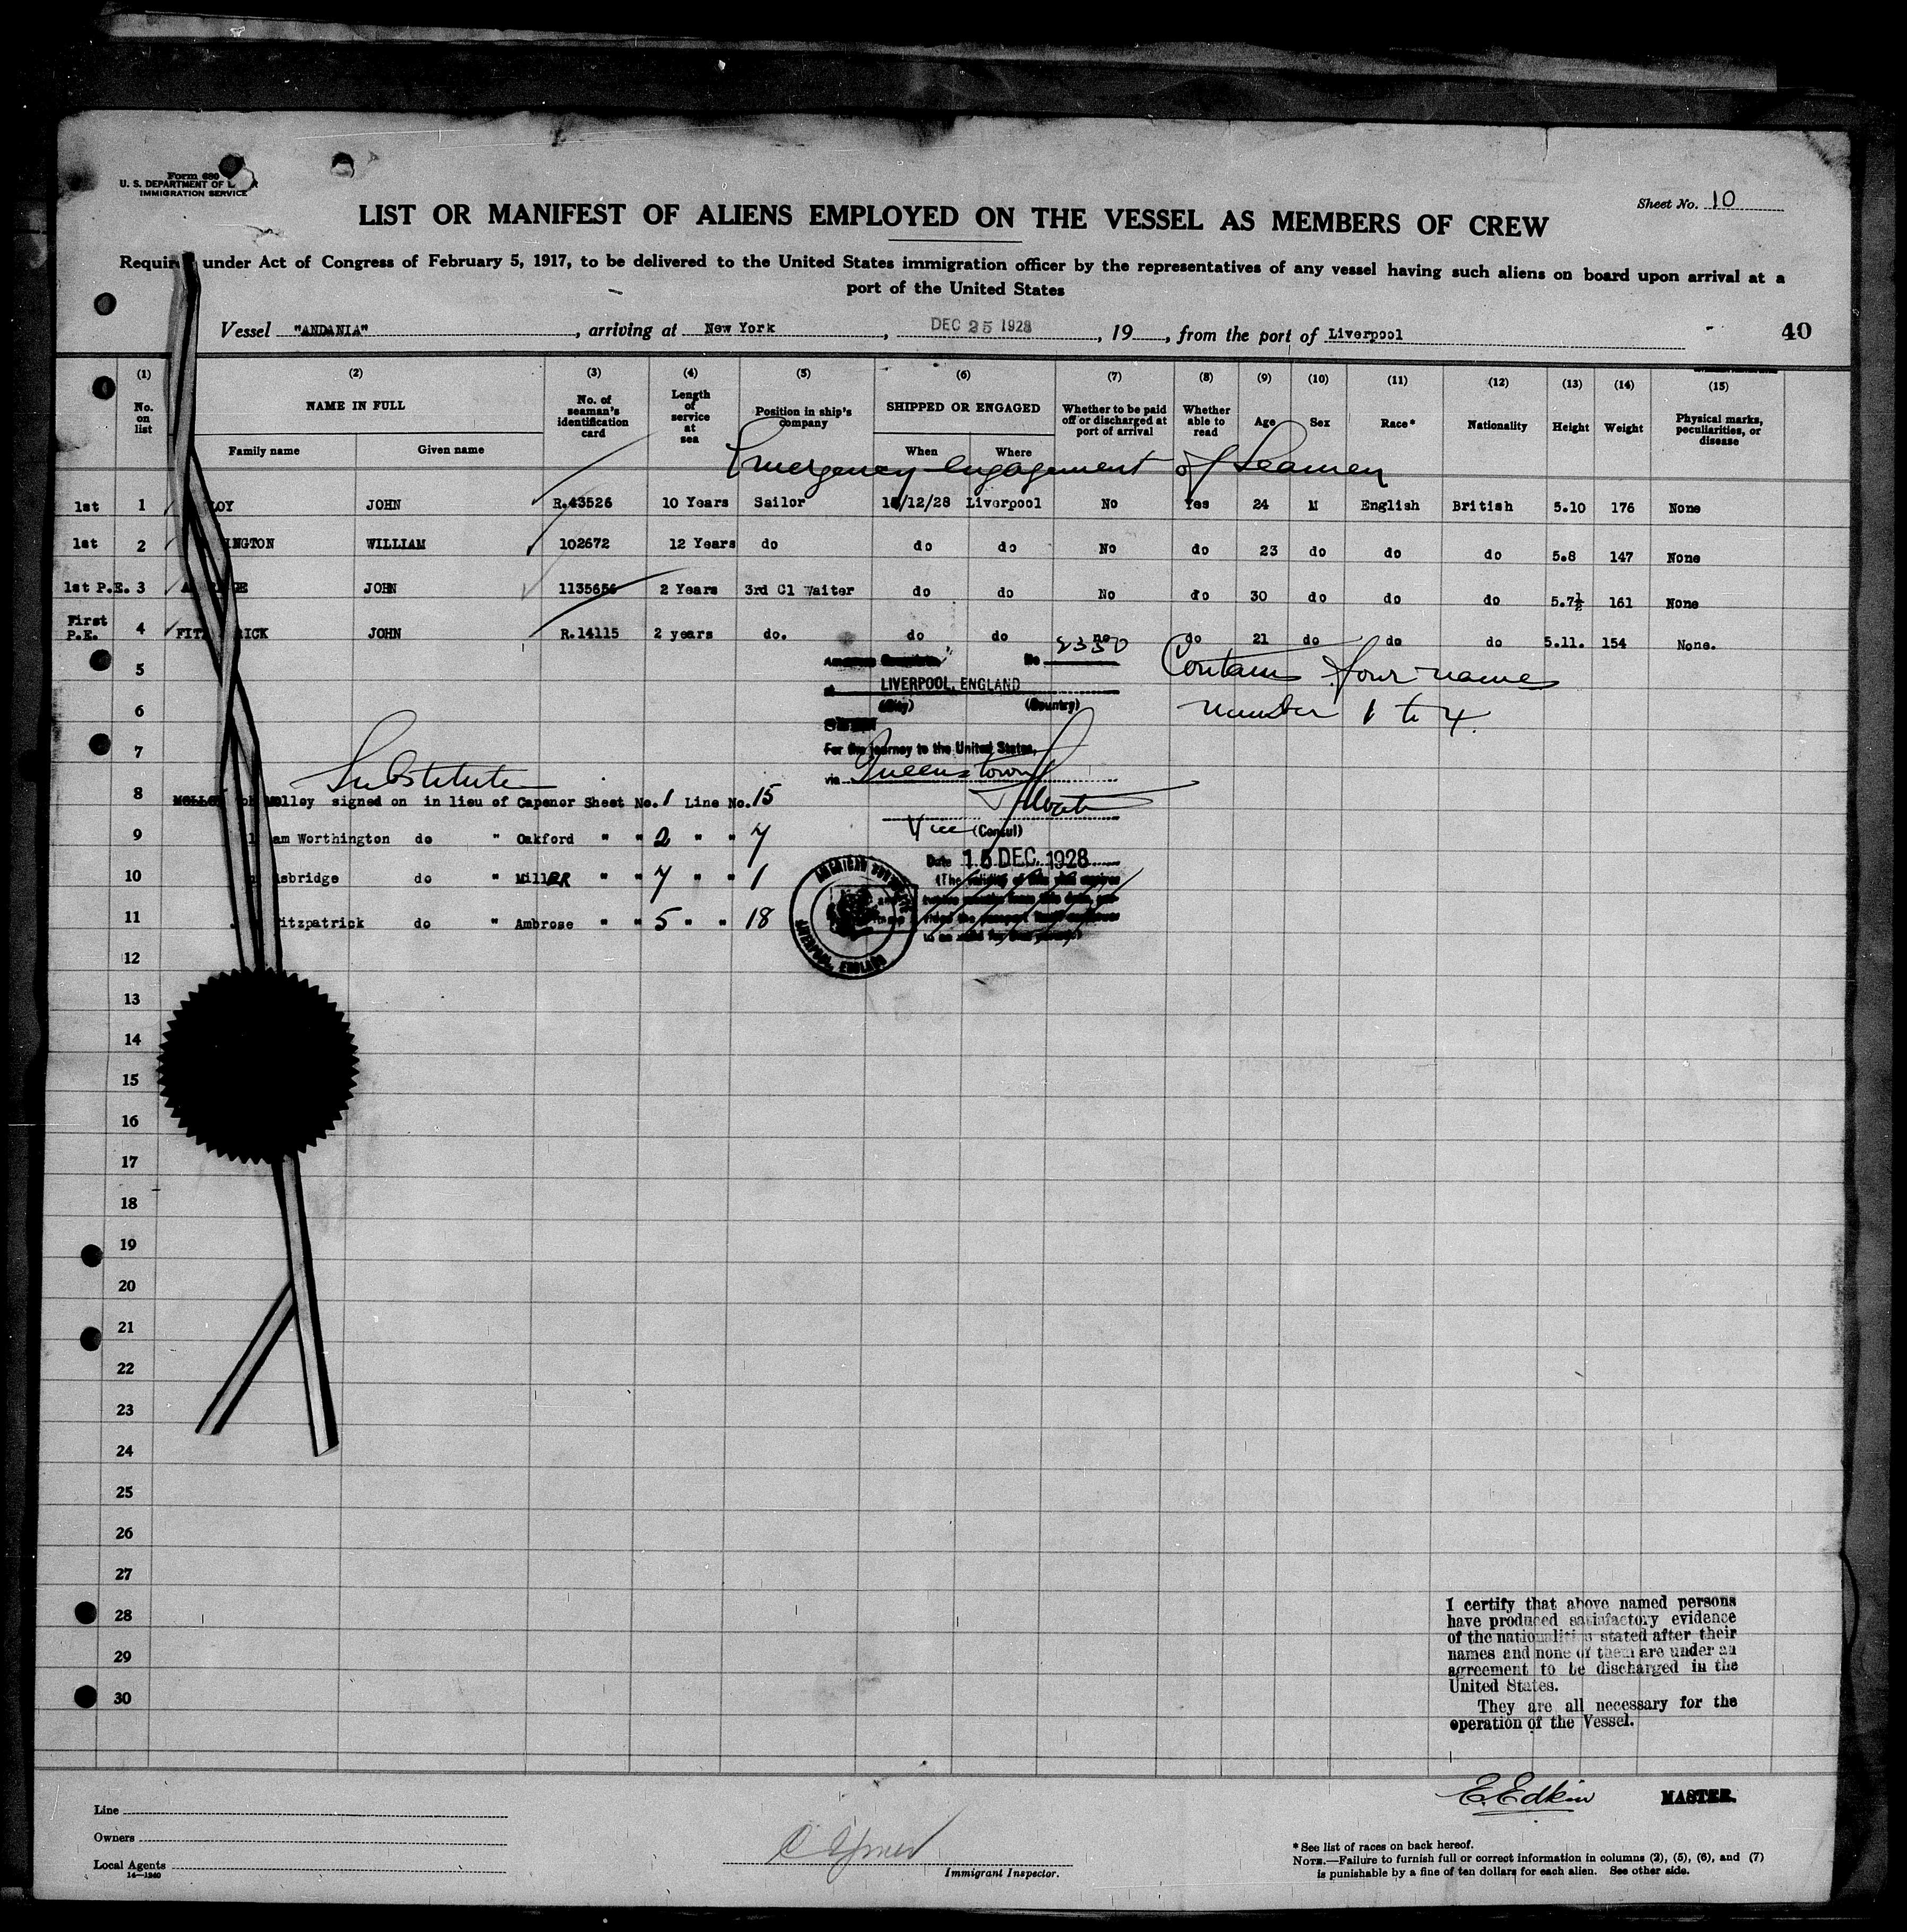 Form 680
U. S. DEPARTMENT OF
IMMIGRATION SERVICE
Sheet No. 10
LIST OR MANIFEST OF ALIENS EMPLOYED ON THE VESSEL AS MEMBERS OF CREW
under Act of Congress of February 5, 1917, to be delivered to the United States immigration officer by the representatives of any vessel having such aliens on board upon arrival at a
port of the United States
Vessel "ANDANIA", arriving at New York, DEC 25 1928, 19, from the port of Liverpool
40
(1) (2) (3) (4) (5) (6) (7) (8) (9) (10) (11) (12) (13) (14) (15)
No. on list NAME IN FULL No. of seaman's identification card Length of service at sea Position in ship's company SHIPPED OR ENGAGED Whether to be paid off or discharged at port of arrival Whether able to read Age Sex Race* Nationality Height Weight Physical marks, peculiarities, or disease
Family name Given name When Where
Emergency engagement of Seamen
1st 1 LOY JOHN R.43526 10 Years Sailor /12/28 Liverpool No Yes 24 M English British 5.10 176 None
1st 2 INGTON WILLIAM 102672 12 Years do do do No do 23 do do do 5.8 147 None
1st P.E. 3 JOHN 1135656 2 Years 3rd Cl Waiter do do No do 30 do do do 5.7½ 161 None
First P.E. 4 FITZ RICK JOHN R.14115 2 years do. do do no do 21 do do do 5.11. 154 None.
5
No 2350
LIVERPOOL, ENGLAND
(City) (Country)
Contains four names
number 1 to 4.
6
7
For the journey to the United States,
via Queenstown
Substitute
8 Molloy signed on in lieu of Capenor Sheet No. 1 Line No. 15
9 am Worthington do " Oakford " " 2 " " 7
Vice (Consul)
Date 15 DEC. 1928
10 lsbridge do " MillER " " 7 " " 1
11 itzpatrick do " Ambrose " " 5 " " 18
LIVERPOOL, ENGLAND
12
13
14
15
16
17
18
19
20
21
22
23
24
25
26
27
28
29
30
I certify that above named persons
have produced satisfactory evidence
of the nationalities stated after their
names and none of them are under an
agreement to be discharged in the
United States.
They are all necessary for the
operation of the Vessel.
E. Edkin MASTER.
Line
Owners
Local Agents
14—1240
Immigrant Inspector.
* See list of races on back hereof.
NOTE.—Failure to furnish full or correct information in columns (2), (5), (6), and (7)
is punishable by a fine of ten dollars for each alien. See other side.